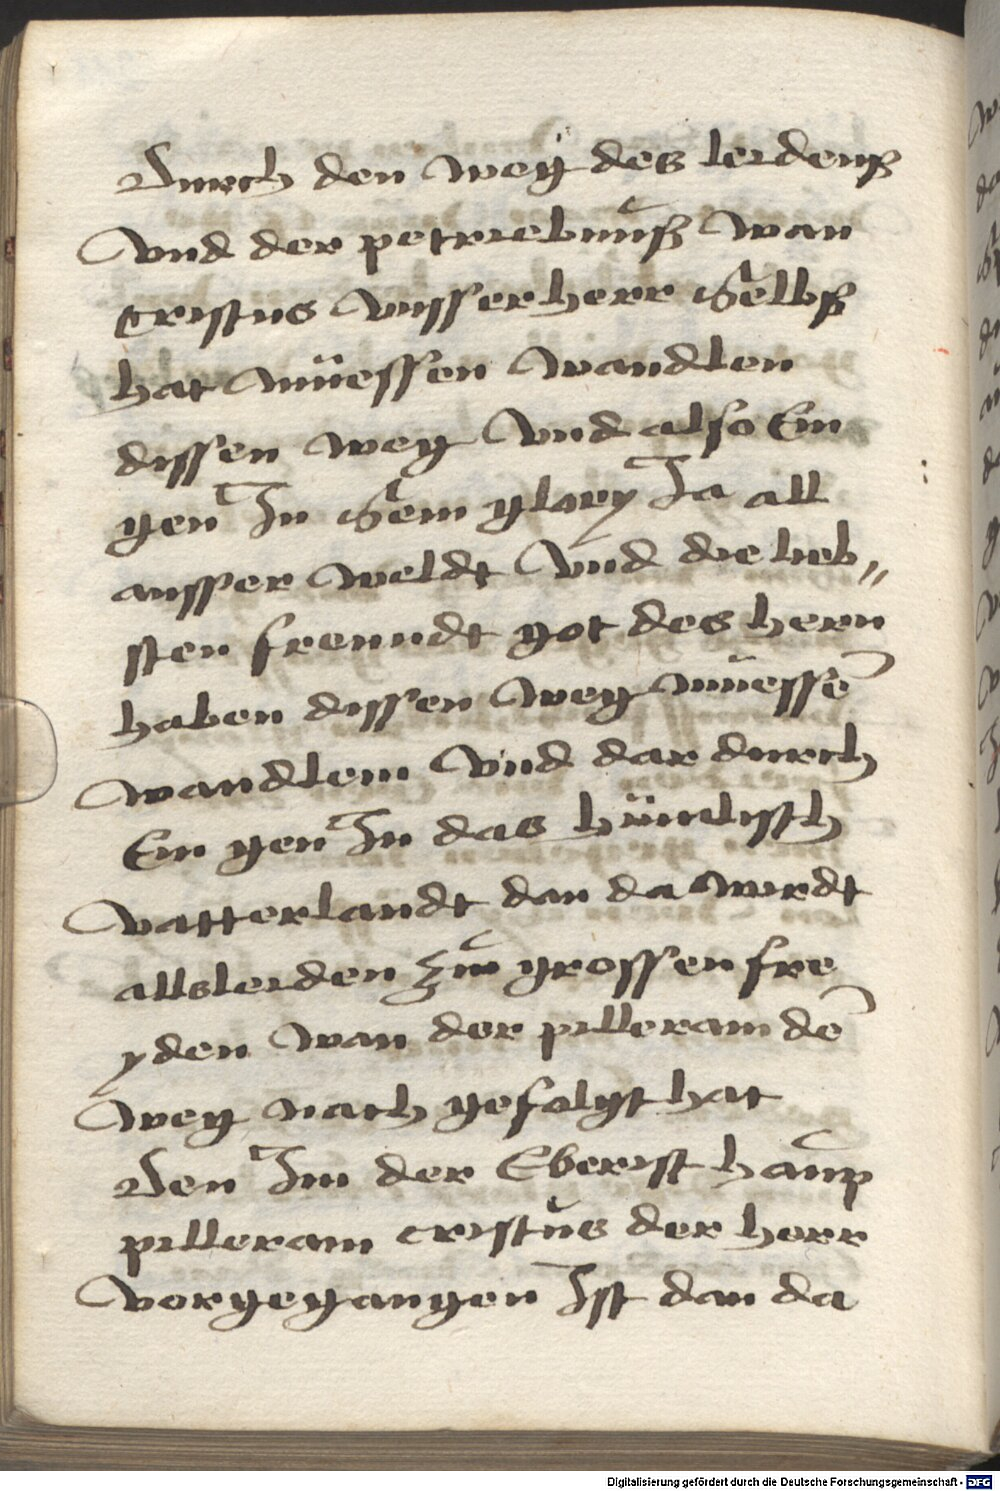 Durch den weÿ des leidenß
vnd der petriebnuß wan
cristus vnsser herr Selbß
hat müessen wandlen
dissen weg vnd also Ein
gen In Sein glory Ja all
ausser weldt vnd die lieb„
sten freundt got des hern
haben dissen weg müessē
wandlem vnd dar durch
Ein gen In das hÿmelisch
vatterlandt dan da wirdt
alls leiden zw grossen fre
yden wan der pilleram dē
weg nach gefolgt hat
Den Im der Eberist haup
pilleram cristůs der herr
vorgegangen Ist dan da
Digitalisierung gefördert durch die Deutsche Forschungsgemeinschaft - DFG